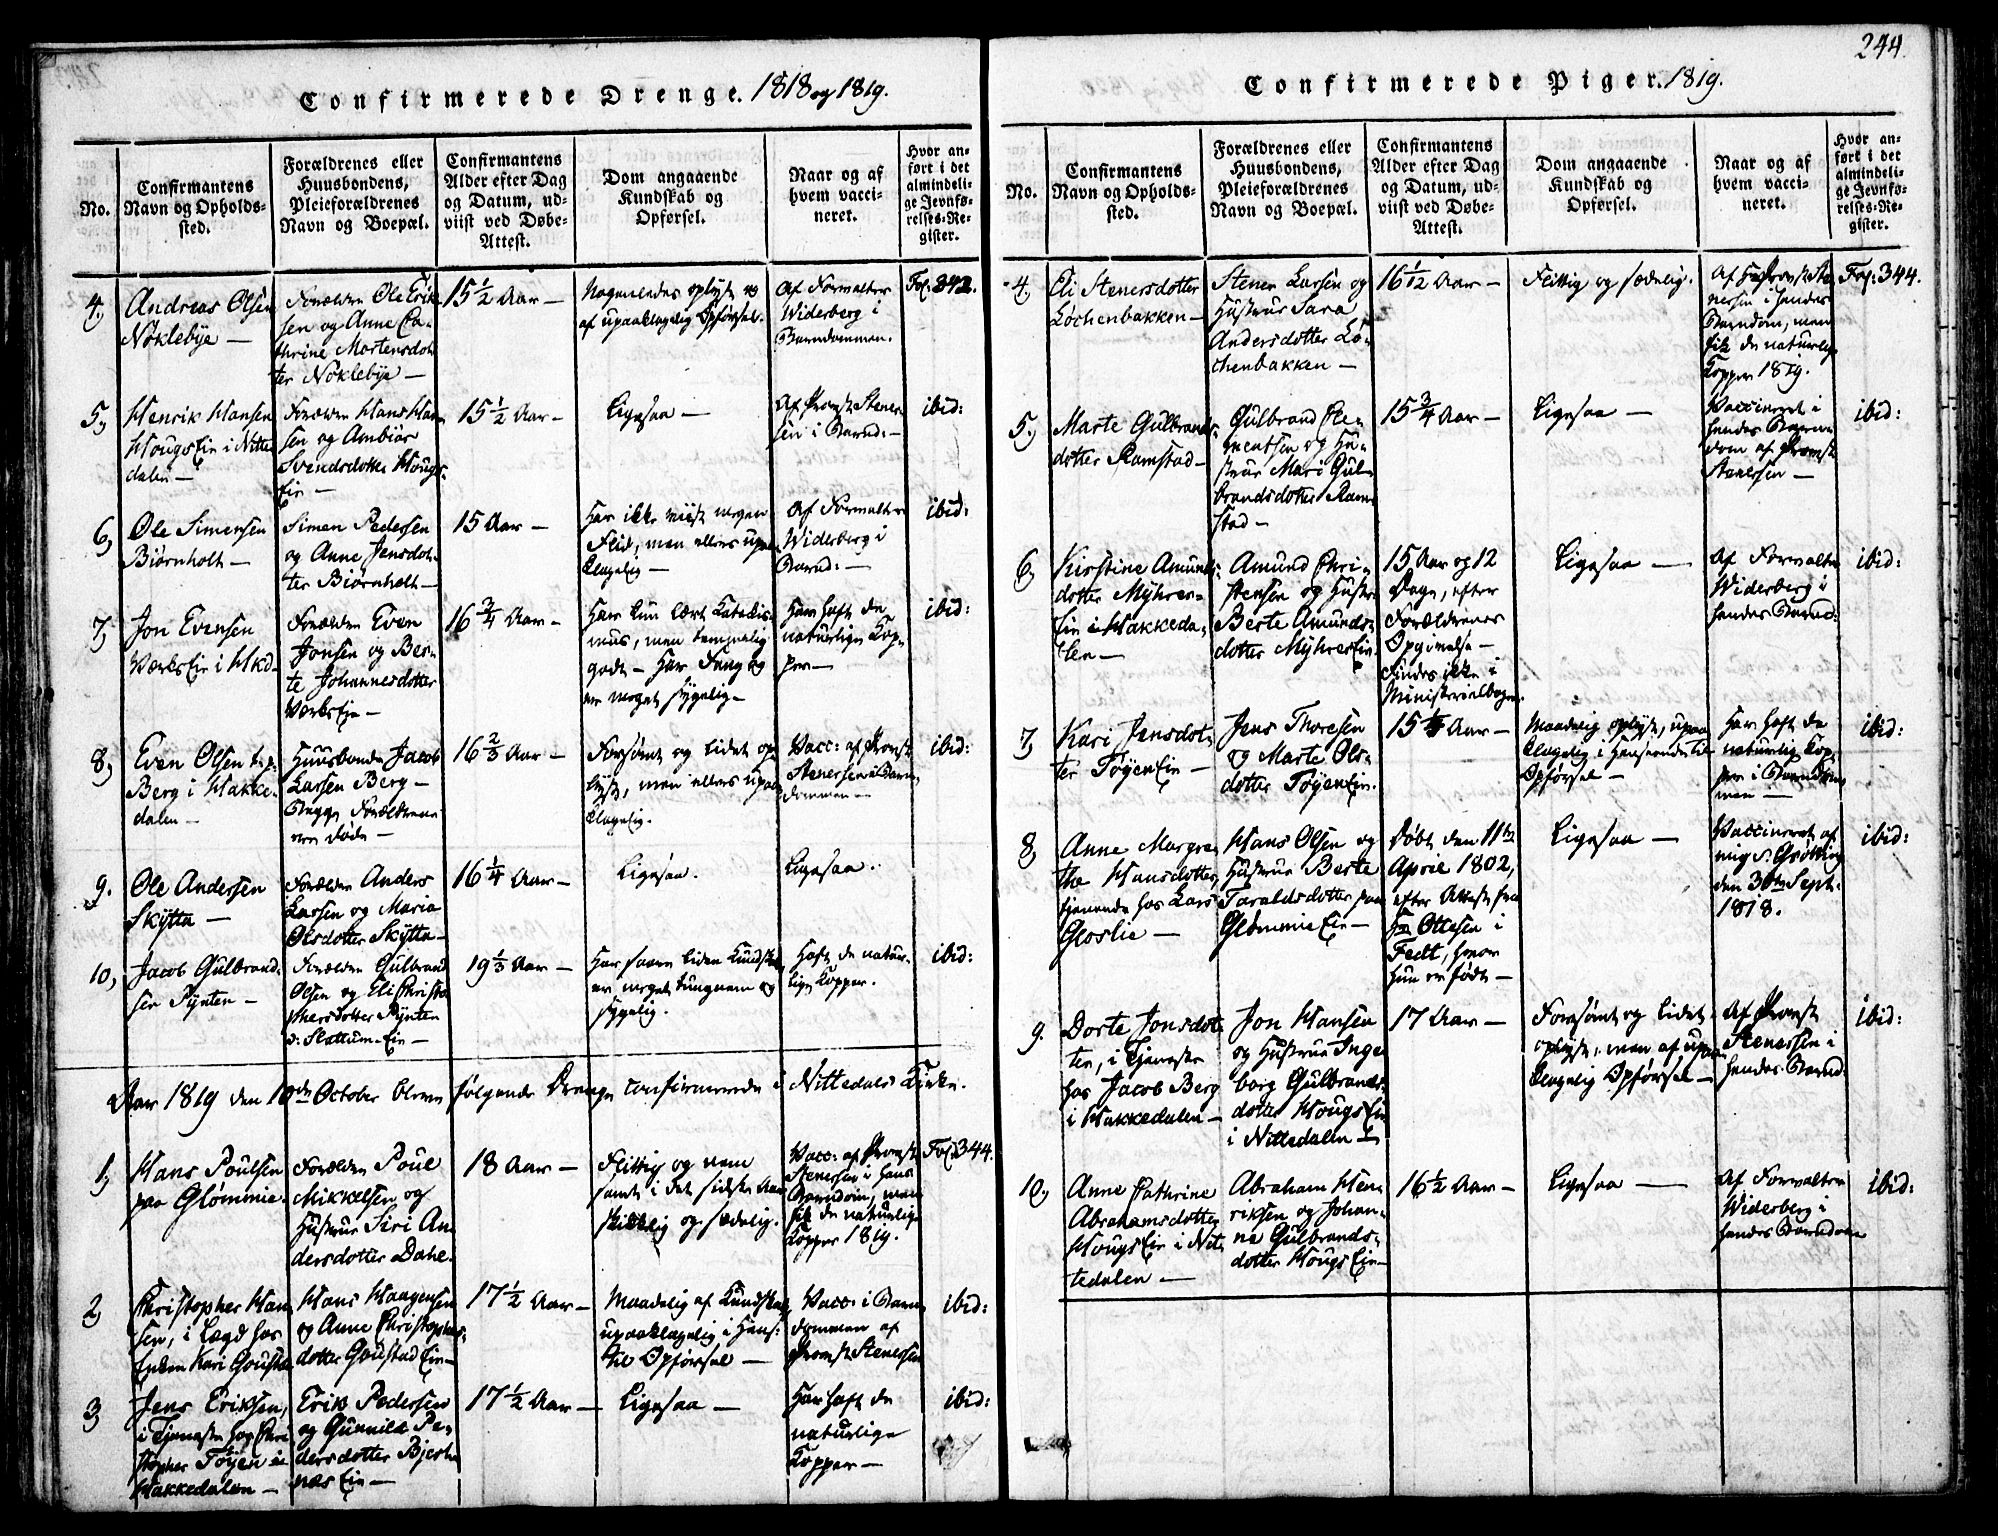 244.
Confirmerede Drenge. 1818 og 1819.
No.
Confirmantens
Navn og Opholds-
sted.
Forældrenes eller
Huusbondens,
Pleieforældrenes
Navn og Boepæl.
Confirmantens
Alder efter Dag
og Datum, ud-
viist ved Døbe-
Attest.
Dom angaaende
Kundskab og
Opførsel.
Naar og af
hvem vacci-
neret.
Hvor an-
ført i det
almindeli-
ge Jevnfø-
relses-Re-
gister.
4,
Andreas Olsen
Nøklebye —
Forældre Ole Erik-
sen og Anne Ca-
thrine Mortensdot-
ter Nøklebye —
15 1/2 Aar —
Nogenledes oplyst og
af upaaklagelig Opførsel.
Af Forvalter
Widerberg i
Barndommen.
Fol. 342.
5,
Henrik Hansen
Hougs Eie i Nitte-
dalen —
Forældre Hans Han-
sen og Ambiør
Svendsdotter Hougs-
Eie —
15 1/2 Aar —
Ligesaa —
Af Provst Stener-
sen i Barnd: —
ibid:
6,
Ole Simensen
Biørnholt —
Simen Pedersen
og Anne Jensdot-
ter Biørnholt —
15 Aar —
Har ikke viist megen
Fliid, men ellers upaa-
klagelig —
Af Forvalter
Widerberg i
Barnd: —
ibid:
7,
Jon Evensen
Værks Eie i Hkd-
Forældre Even
Jonsen og Ber-
te Johannesdotter
Værks Eie —
16 3/4 Aar —
Har kun lært Katekis-
mus, men temmelig
godt — Har
er meget sygelig —
Har haft de
naturlige Kop-
per —
ibid:
8,
Even Olsen
Berg i Hakke-
dalen —
Huusbonde Jacob
Larsen Berg —
Begge Forældrene
ere døde —
16 2/3 Aar —
Forsømt og lidet op-
lyst, men ellers upaa-
klagelig.
Vacc: af Provst
Stenersen i Barn-
dommen —
ibid:
9.
Ole Andersen
Skytta —
Forældre Anders
Larsen og Maria
Olsdotter Skytta —
16 1/4 Aar —
Ligesaa.
Ligesaa.
10,
Jacob Gulbrand-
sen Pynten —
Forældre Gulbrand
Olsen og Eli Christo-
phersdotter Pynten
Slattum-Eie —
19 1/3 Aar —
Har saare liden Kundskab,
er meget tungnem og
sygelig.
Haft de natur-
lige Kopper.
ibid:
Aar 1819 den 10de October bleve følgende Drenge confirmerede i Nittedals Kirke.
1,
Hans Poulsen
paa Glømmie.
Forældre Poul
Mikkelsen og
Hustrue Siri An-
dersdotter Dahl.
18 Aar —
Flittig og nem
samt i det sidste Aar
skikkelig og sædelig.
Vacc: af Provst
Stenersen i hans
Barndom, men
fik de naturlige
Kopper 1819.
Fol. 344.
2,
Christopher Han-
sen, i Lægd hos
Enken Kari Goustad
Hans Haagensen
og Anne Christophers-
dotter Goustad Eie —
17 1/2 Aar —
Maadelig af Kundskab,
upaaklagelig i Hens:
til Opførsel —
Vacc: i Barn-
dommen af
Provst Stenersen
ibid:
3,
Jens Eriksen,
i Tjeneste hos Chri-
stopher Tøyen i
Hakkedalen —
Erik Pedersen
og Gunnild Pe-
dersdotter Bjerke-
næs Eie —
17 1/2 Aar —
Ligesaa —
Har haft de
naturlige
Kopper —
ibid:
Confirmerede Piger. 1819.
No.
Confirmantens
Navn og Opholds-
sted.
Forældrenes eller
Huusbondens,
Pleieforældrenes
Navn og Boepæl.
Confirmantens
Alder efter Dag
og Datum, ud-
viist ved Døbe-
Attest.
Dom angaaende
Kundskab og
Opførsel.
Naar og af
hvem vacci-
neret.
Hvor an-
ført i det
almindeli-
ge Jevnfø-
relses-Re-
gister.
4,
Eli Stenersdotter
Løchenbakken —
Stener Larsen og
Hustrue Sara
Andersdotter Lø-
chenbakken —
16 1/2 Aar —
Flittig og sædelig.
Af Hr Provst Ste-
nersen i hendes
Barndom, men
fik de naturlige
Kopper 1819.
Fol: 344.
5,
Marte Gulbrands-
dotter Ramstad —
Gulbrand Cle-
mentsen og Hu-
strue Mari Gul-
brandsdotter Ram-
stad —
15 3/4 Aar —
Ligesaa —
Vaccineret i
hendes Barn-
dom af Provst
Stenersen —
ibid:
6,
Kirstine Amunds-
dotter Myhrer-
Eie i Hakkeda-
len —
Amund Chri-
stensen og Hustr:
Berte Amunds-
dotter Myhrer Eie.
15 Aar og 12
Dage, efter
Forældrenes
Opgivelse —
Findes ikke i
Ministerialbogen.
Ligesaa —
Af Forvalter
Widerberg i
hendes Barnd:
ibid:
7,
Kari Jensdot-
ter Tøyen Eie —
Jens Thoresen
og Marte Ols-
dotter Tøyen Eie.
15 Aar —
Maadelig oplyst, upaa-
klagelig i Henseende til
Opførsel —
Har haft de
naturlig Kop-
per i Barndom-
men —
ibid:
8,
Anne Margre-
the Hansdotter,
tjenende hos Lars
Gloslie —
Hans Olsen og
Hustrue Berte
Taraldsdotter paa
Glømmie Eie —
Døbt den 11te
April 1802,
efter Attest fra
Hr Ottesen i
Fedt, hvor
hun er født —
Ligesaa —
Vaccineret af
mig S. Grøtting
den 30te Sept.
1818.
ibid:
9.
Dorte Jonsdot-
ter, i Tjeneste
hos Jacob Berg
i Hakkedalen —
Jon Hansen
og Hustrue Inge-
borg Gulbrands-
dotter Hougs Eie
i Nittedalen —
17 Aar —
Forsømt og lidet
oplyst, men af upaa-
klagelig Opførsel —
Af Provst
Stenersen i
hendes Barnd:
ibid:
10,
Anne Cathrine
Abrahamsdotter
Hougs Eie i Nit-
tedalen —
Abraham Hen-
riksen og Johan-
ne Gulbrands-
dotter Hougs Eie —
16 1/2 Aar —
Ligesaa —
Af Forvalter
Widerberg i
hendes Barndom
ibid: